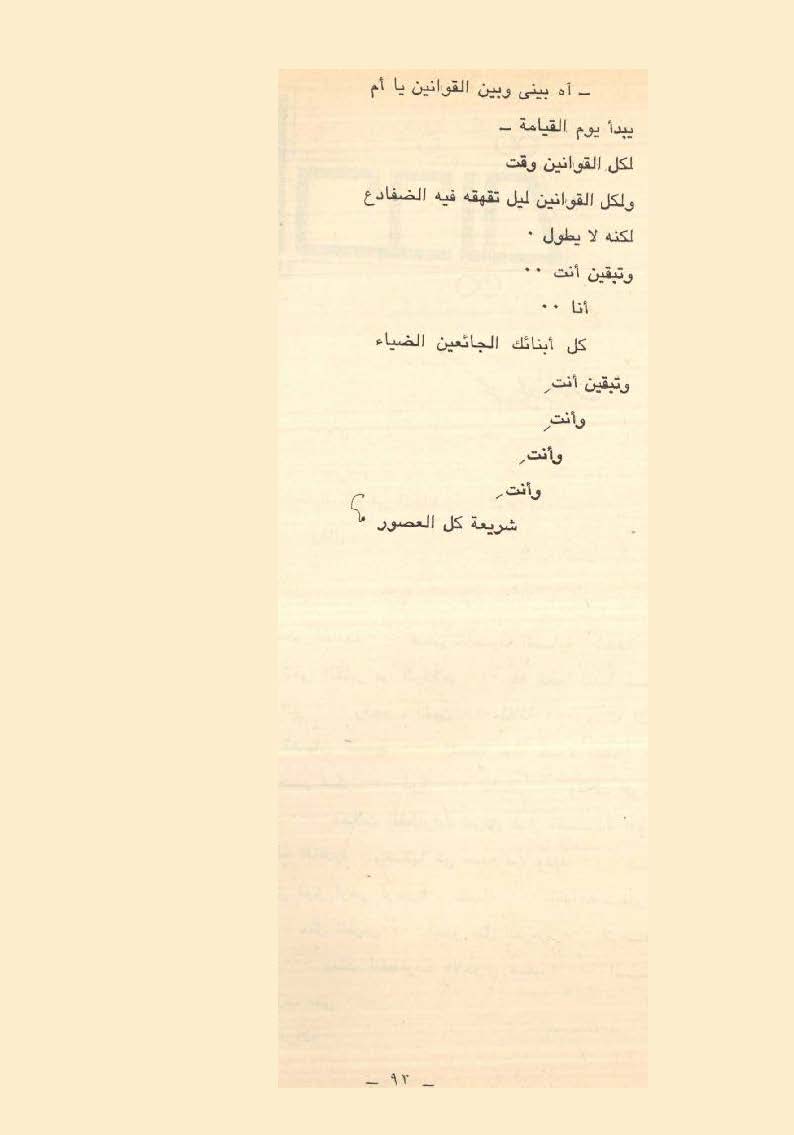 ـ آه بينى وبين القوانين يا أم
يبدأ يوم القيامة ـ
لكل القوانين وقت
ولكل القوانين ليل تقهقه فيه الضفادع
لكنه لا يطول ٠
وتبقين أنت ٠٠
أنا ٠٠
كل أبنائك الجائعين الضياء
وتبقين أنتِ
وأنتِ
وأنتِ
وأنتِ
شريعة كل العصور
ـ ٩٣ ـ